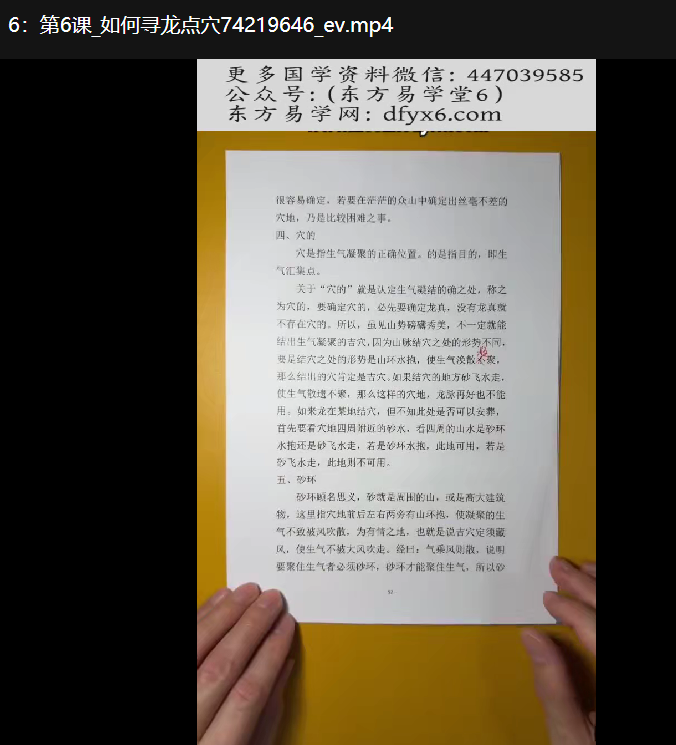 6：第6课_如何寻龙点穴74219646_ev.mp4
更多国学资料微信: 447039585
公众号:(东方易学堂6)
东方易学网: dfyx6.com
很容易确定，若要在茫茫的众山中确定出丝毫不差的
穴地，乃是比较困难之事。
四、穴的
穴是指生气凝聚的正确位置。的是指目的，即生
气汇集点。
关于“穴的”就是认定生气凝结的确之处，称之
为穴的，要确定穴的，必先要确定龙真，没有龙真就
不存在穴的。所以，虽见山势磅礴秀美，不一定就能
结出生气凝聚的吉穴，因为山脉结穴之处的形势不同，
要是结穴之处的形势是山环水抱，使生气涣散不聚，
那么结出的穴肯定是吉穴。如果结穴的地方砂飞水走，
使生气散漫不聚，那么这样的穴地，龙脉再好也不能
用。如果龙在某地结穴，但不知此处是否可以安葬，
首先要看穴地四周附近的砂水，看四周的山水是砂环
水抱还是砂飞水走，若是砂环水抱，此地可用，若是
砂飞水走，此地则不可用。
五、砂环
砂环顾名思义，砂就是周围的山，或是高大建筑
物，这里指穴地前后左右两旁有山环抱，使凝聚的生
气不致被风吹散，为有情之地，也就是说吉穴定须藏
风，使生气不被大风吹走。经曰：气乘风则散，说明
要聚住生气者必须砂环，砂环才能聚住生气，所以砂